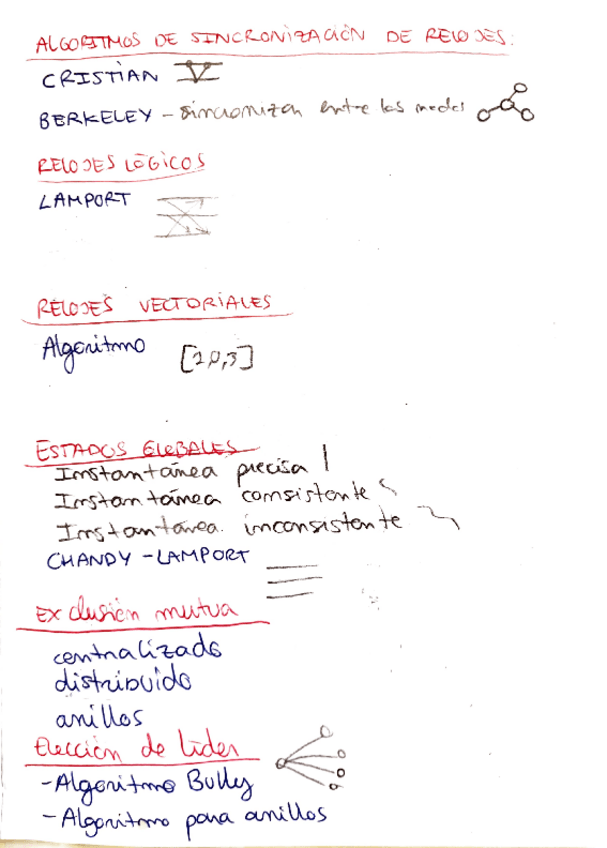 ALGORITMOS DE SINCRONIZACIÓN DE RELOJES:
CRISTIAN
BERKELEY - sincronizan entre los nodos
RELOJES LÓGICOS
LAMPORT
RELOJES VECTORIALES
Algoritmo [2,0,3]
ESTADOS GLOBALES
Instantánea precisa
Instantánea consistente
Instantánea inconsistente
CHANDY - LAMPORT
Exclusión mutua
centralizado
distribuido
anillos
Elección de líder
- Algoritmo Bully
- Algoritmo para anillos